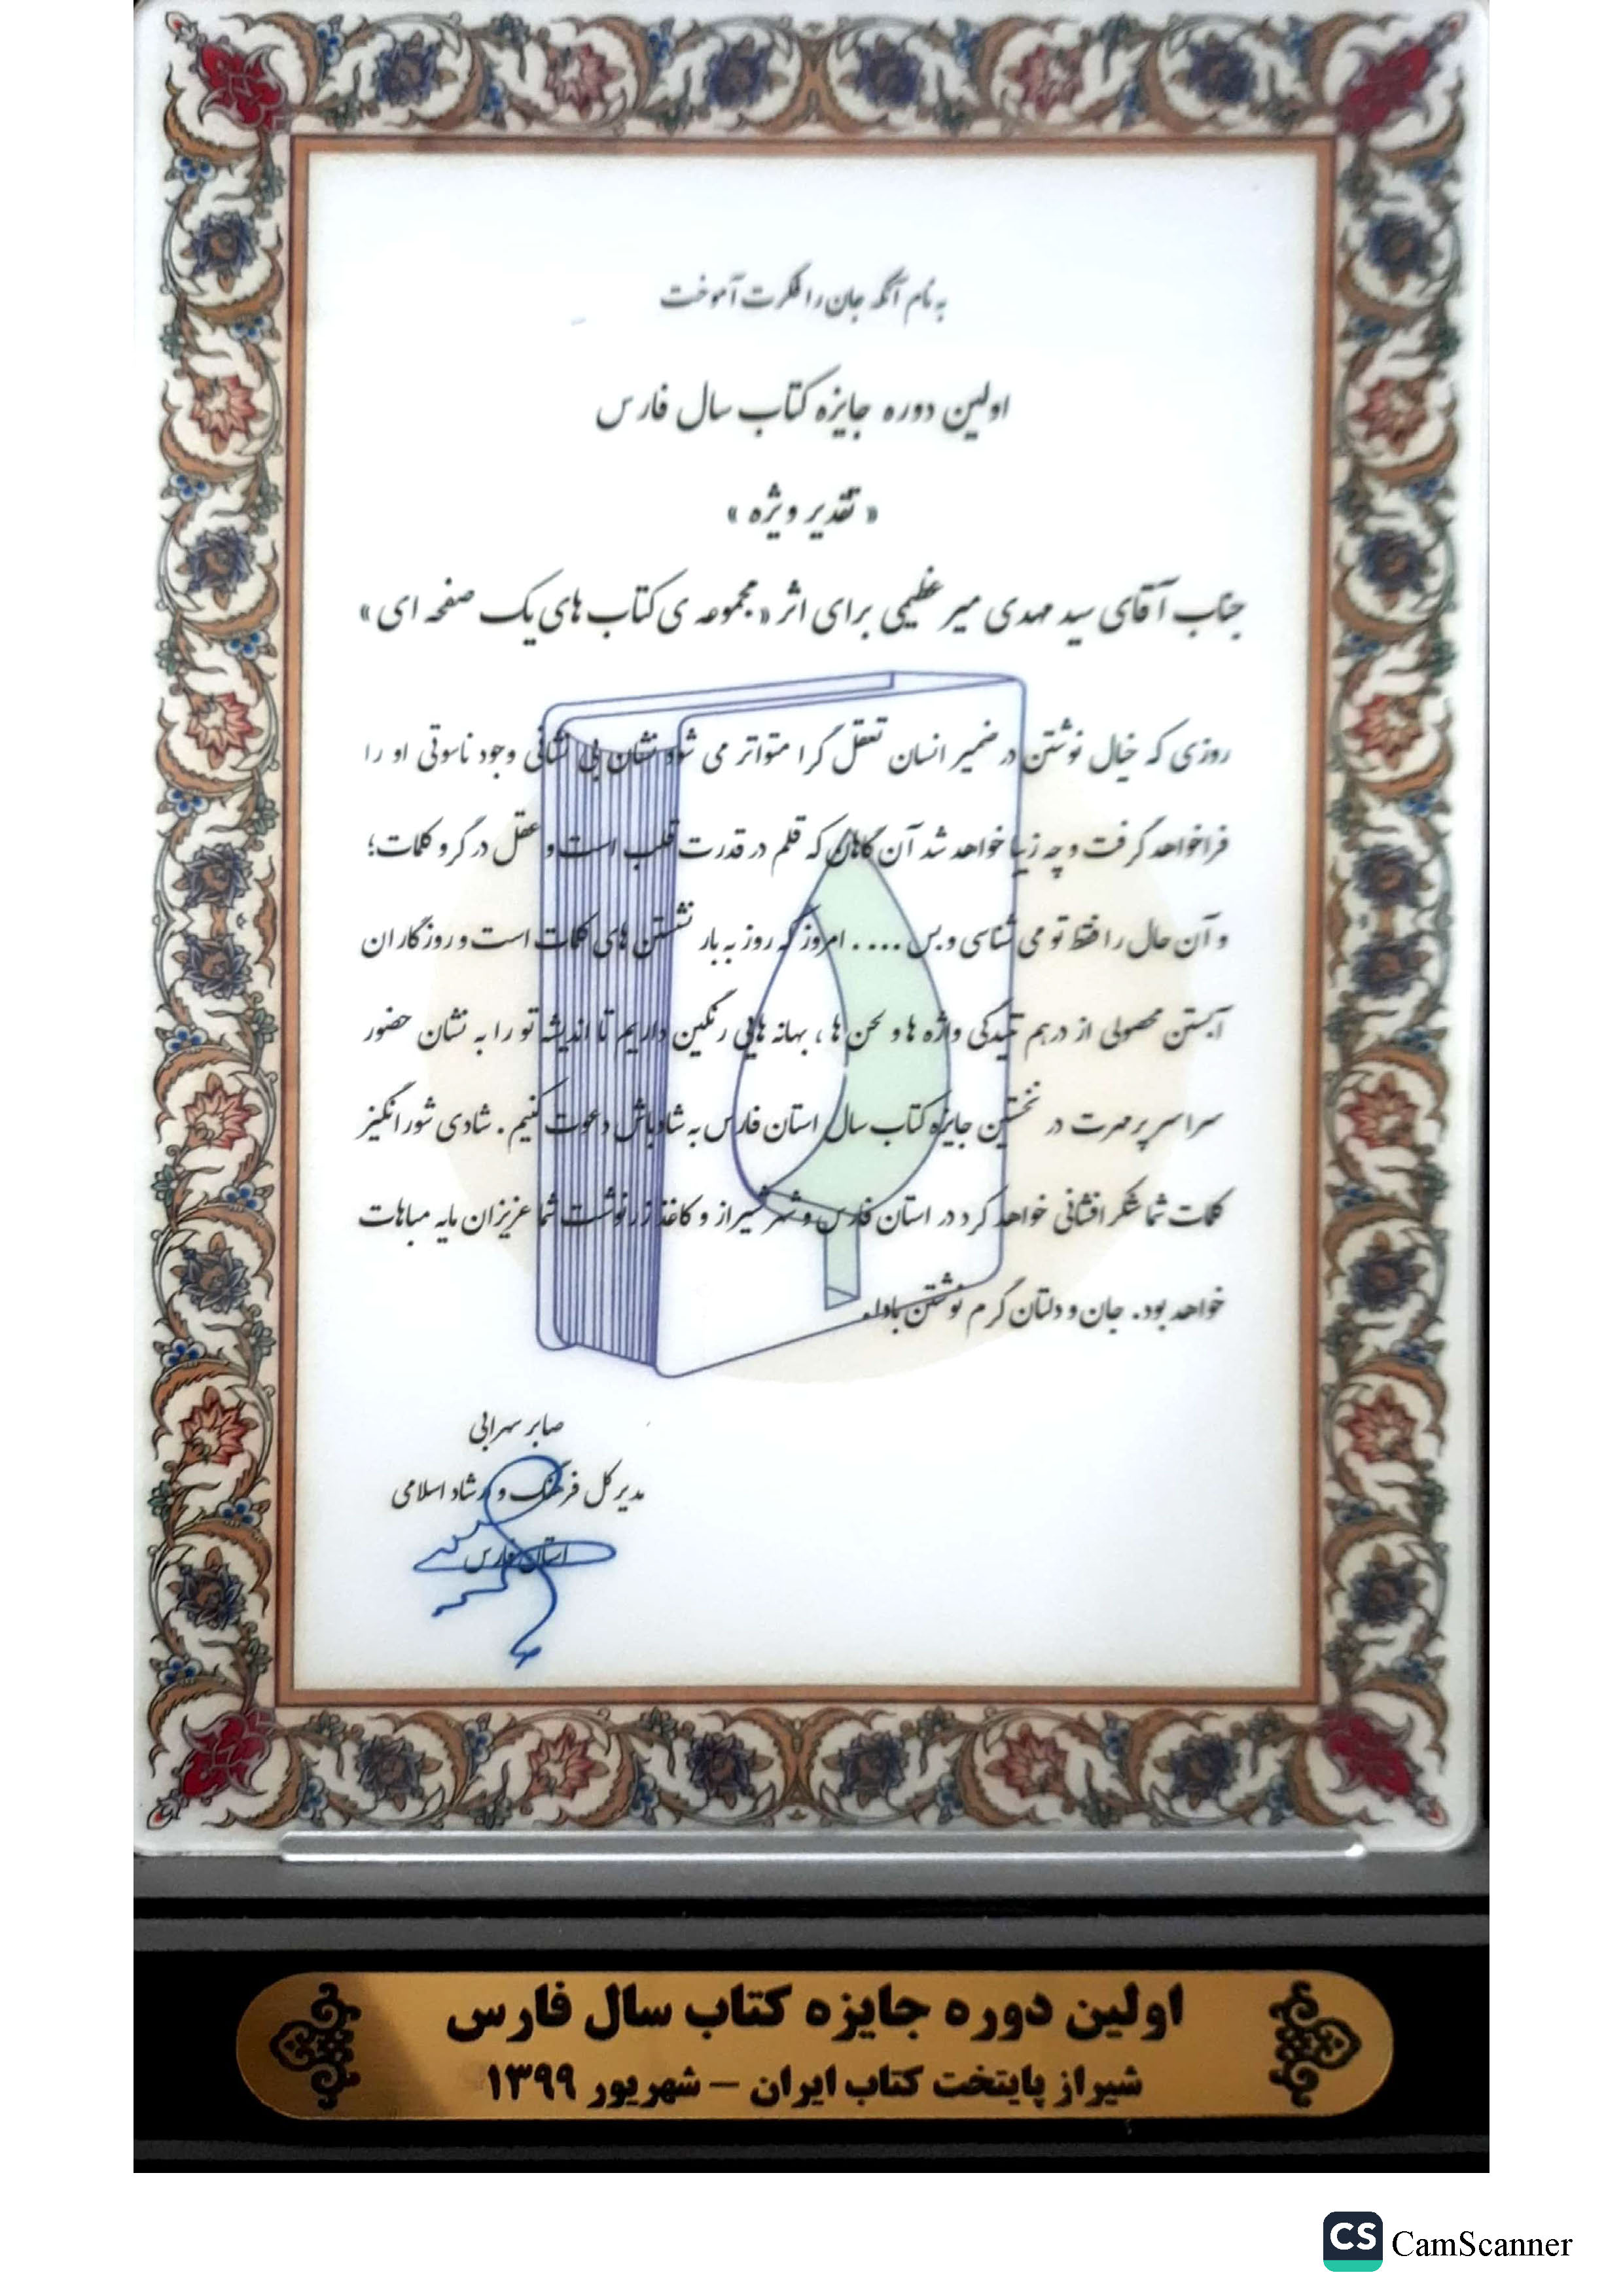 به نام آنکه جان را فکرت آموخت
اولین دوره جایزه کتاب سال فارس
« تقدیر ویژه »
جناب آقای سید مهدی میر عظیمی برای اثر «مجموعه ی کتاب های یک صفحه ای»
روزی که خیال نوشتن در ضمیر انسان تعقل گرا متواتر می شود نشان بی نشانی وجود ناسوتی او را
فراخواهد گرفت و چه زیبا خواهد شد آن گاهان که قلم در قدرت قلب است و عقل در گرو کلمات؛
و آن حال را فقط تو می شناسی و بس .... امروز که روز به بار نشستن های کلمات است و روزگاران
آبستن محصولی از درهم تنیدگی واژه ها و لحن ها ، بهانه هایی رنگین داریم تا اندیشه تو را به نشان حضور
سراسر پر مهرت در نخستین جایزه کتاب سال استان فارس به شادباش دعوت کنیم . شادی شور انگیز
کلمات شما شکر افشانی خواهد کرد در استان فارس و شهر شیراز و کاغذ زرنوشت شما عزیزان مایه مباهات
خواهد بود. جان و دلتان گرم نوشتن بادا.
صابر سهرابی
مدیر کل فرهنگ و ارشاد اسلامی
استان فارس
اولین دوره جایزه کتاب سال فارس
شیراز پایتخت کتاب ایران – شهریور ۱۳۹۹
CS CamScanner